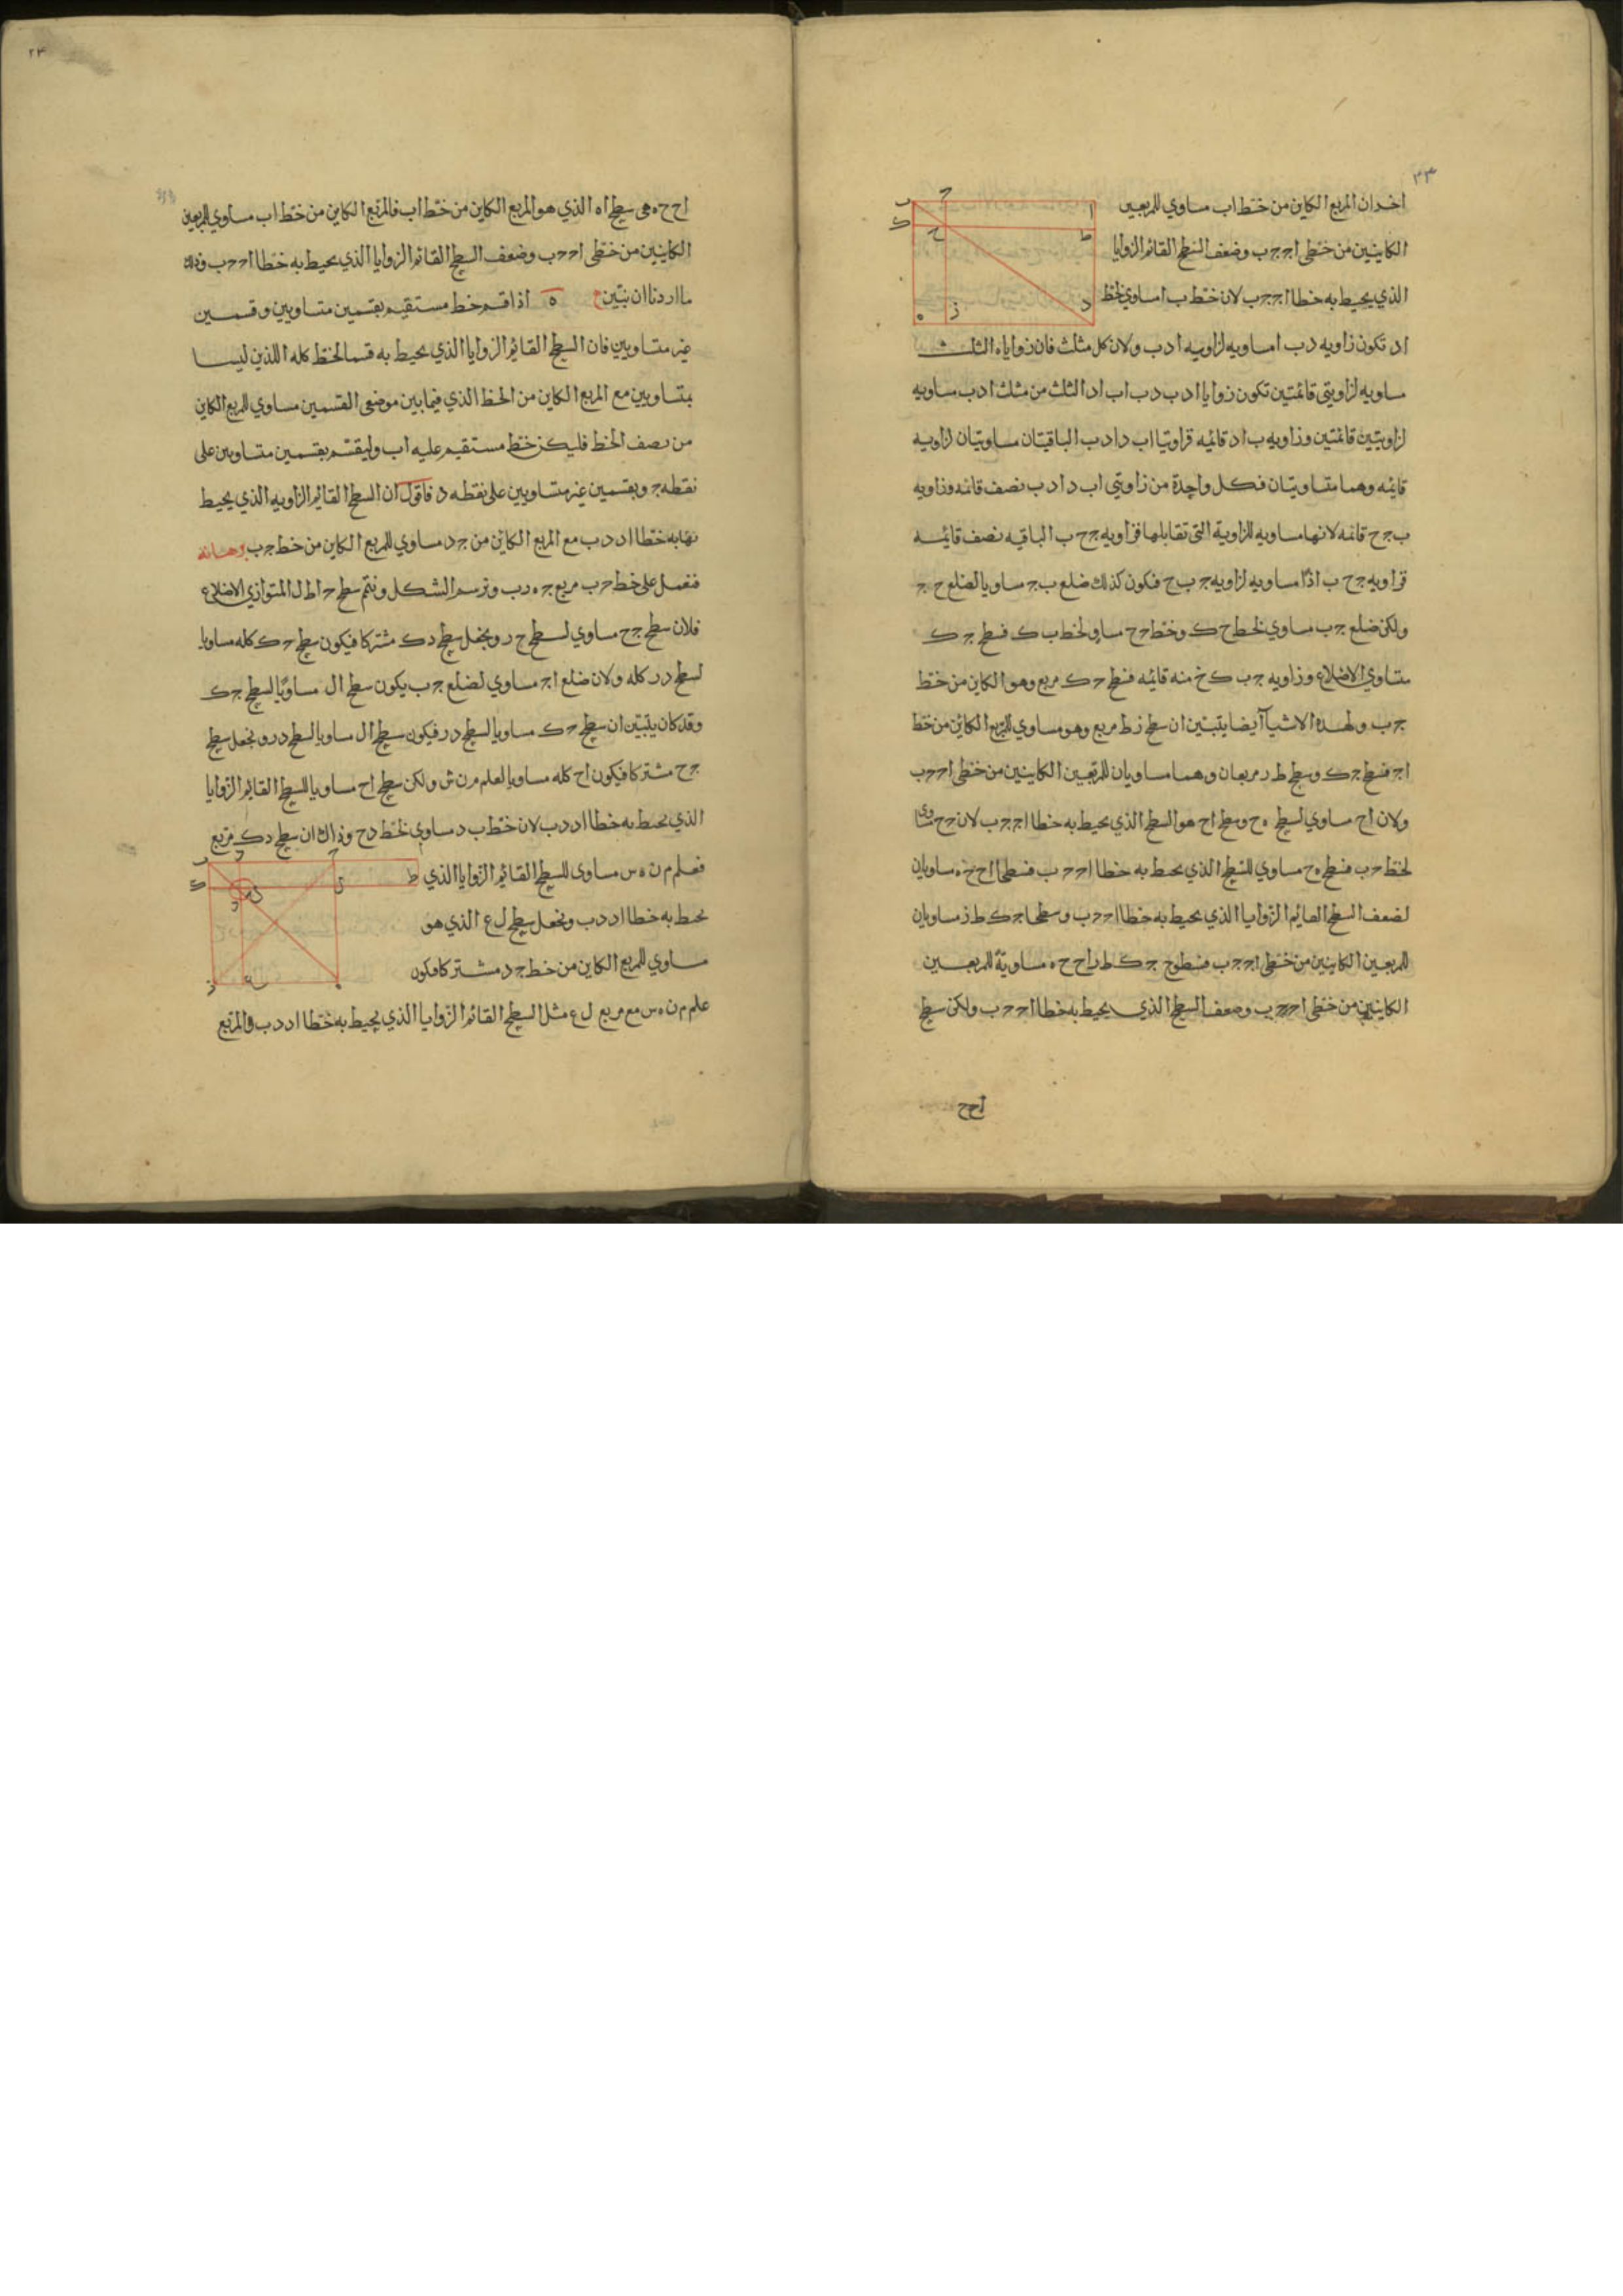 ٢٣
اخد ان المربع الكاين من خط اب مساوي للمربعين
الكاينين من خطي اج جب وضعف السطح القائم الزوايا
الذي يحيط به خطا اج جب لان خط ب ا مساوي لخط
اد تكون زاويه د ب ا مساويه لزاويه ا د ب ولان كل مثلث فان زواياه الثلث
مساويه لزاويتي قائمتين تكون زوايا ا د ب د ب ا ب ا د الثلث من مثلث ا د ب مساويه
لزاويتين قائمتين وزاويه ب ا د قائمه فزاويتا ا ب د ا د ب الباقيتان مساويتان لزاويه
قائمه وهما متساويتان فكل واحدة من زاويتي ا ب د ا د ب نصف قائمه وزاويه
ب ج ح قائمه لانها مساويه للزاوية التي تقابلها فزاويه ج ح ب الباقيه نصف قائمه
فزاويه ج ح ب اذا مساويه لزاويه ج ب ح فكون كذلك ضلع ب ج مساويا لضلع ح ج
ولكن ضلع ج ب مساوي لخط ح ك وخط ج ح مساو لخط ب ك فسطح ج ك
متساوي الاضلاع وزاويه ج ب ك منه قائمه فسطح ج ك مربع وهو الكاين من خط
ج ب ولهذه الاشيا ايضا يتبين ان سطح ز ط مربع وهو مساوي للمربع الكاين من خط
اج فسطح ج ك وسطح ط ر مربعان وهما مساويان للمربعين الكاينين من خطي اج جب
ولان اح مساوي لسطح ه ح وسطح اح هو السطح الذي يحيط به خطا اج جب لان ج ح مساوي
لخط ج ب فسطح ه ح مساوي للسطح الذي يحيط به خطا اج جب فسطحا اح ح ه مساويان
لضعف السطح القايم الزوايا الذي يحيط به خطا اج جب وسطحا ج ك ط ز مساويان
للمربعين الكاينين من خطي اج جب فسطوح ج ك ط ر اح ح ه مساوية للمربعين
الكاينين من خطي اج جب وضعف السطح الذي يحيط به خطا اج جب ولكن سطح
اح ح
٢٤
اح ح ه هي سطح اه الذي هو المربع الكاين من خط اب فالمربع الكاين من خط اب مساوي للمربعين
الكاينين من خطي اج جب وضعف السطح القائم الزوايا الذي يحيط به خطا اج جب وذلك
ما اردنا ان نبين ه اذا قسم خط مستقيم بقسمين متساويين وقسمين
غير متساويين فان السطح القائم الزوايا الذي يحيط به قسما الخط كله اللذين ليسا
بمتساويين مع المربع الكاين من الخط الذي فيما بين موضعي القسمين مساوي للمربع الكاين
من نصف الخط فليكن خط مستقيم عليه اب وليقسم بقسمين متساويين على
نقطه ج وبقسمين غير متساويين على نقطه د فاقول ان السطح القائم الزاويه الذي يحيط
به خطا اد دب مع المربع الكاين من ج د مساوي للمربع الكاين من خط ج ب برهانه
فنعمل على خط ج ب مربع ج ه ر ب ونرسم الشكل ونتم سطح ج ا ط ل المتوازي الاضلاع
فلان سطح ج ح مساوي لسطح ح ر ونجعل سطح د ك مشتركا فيكون سطح ج ك كله مساويا
لسطح د ر كله ولان ضلع اج مساوي لضلع ج ب يكون سطح ال مساويا لسطح ج ك
وقد كان يتبين ان سطح ج ك مساويا لسطح د ر فيكون سطح ال مساويا لسطح د ر ونجعل سطح
ج ح مشتركا فيكون اح كله مساويا لعلم م ن س ولكن سطح اح مساويا للسطح القايم الزوايا
الذي يحيط به خطا اد دب لان خط ب د مساوي لخط د ح وذاك ان سطح د ك مربع
فعلم م ن ه س مساوي للسطح القائم الزوايا الذي
يحيط به خطا اد دب ونجعل سطح ل ع الذي هو
مساوي للمربع الكاين من خط ج د مشتركا فيكون
علم م ن ه س مع مربع ل ع مثل السطح القائم الزوايا الذي يحيط به خطا اد دب والمربع